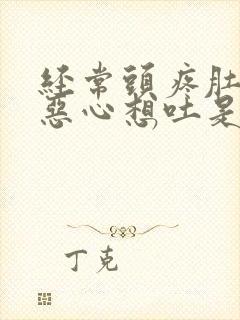 經常頭疼肚
惡心想吐是
丁克